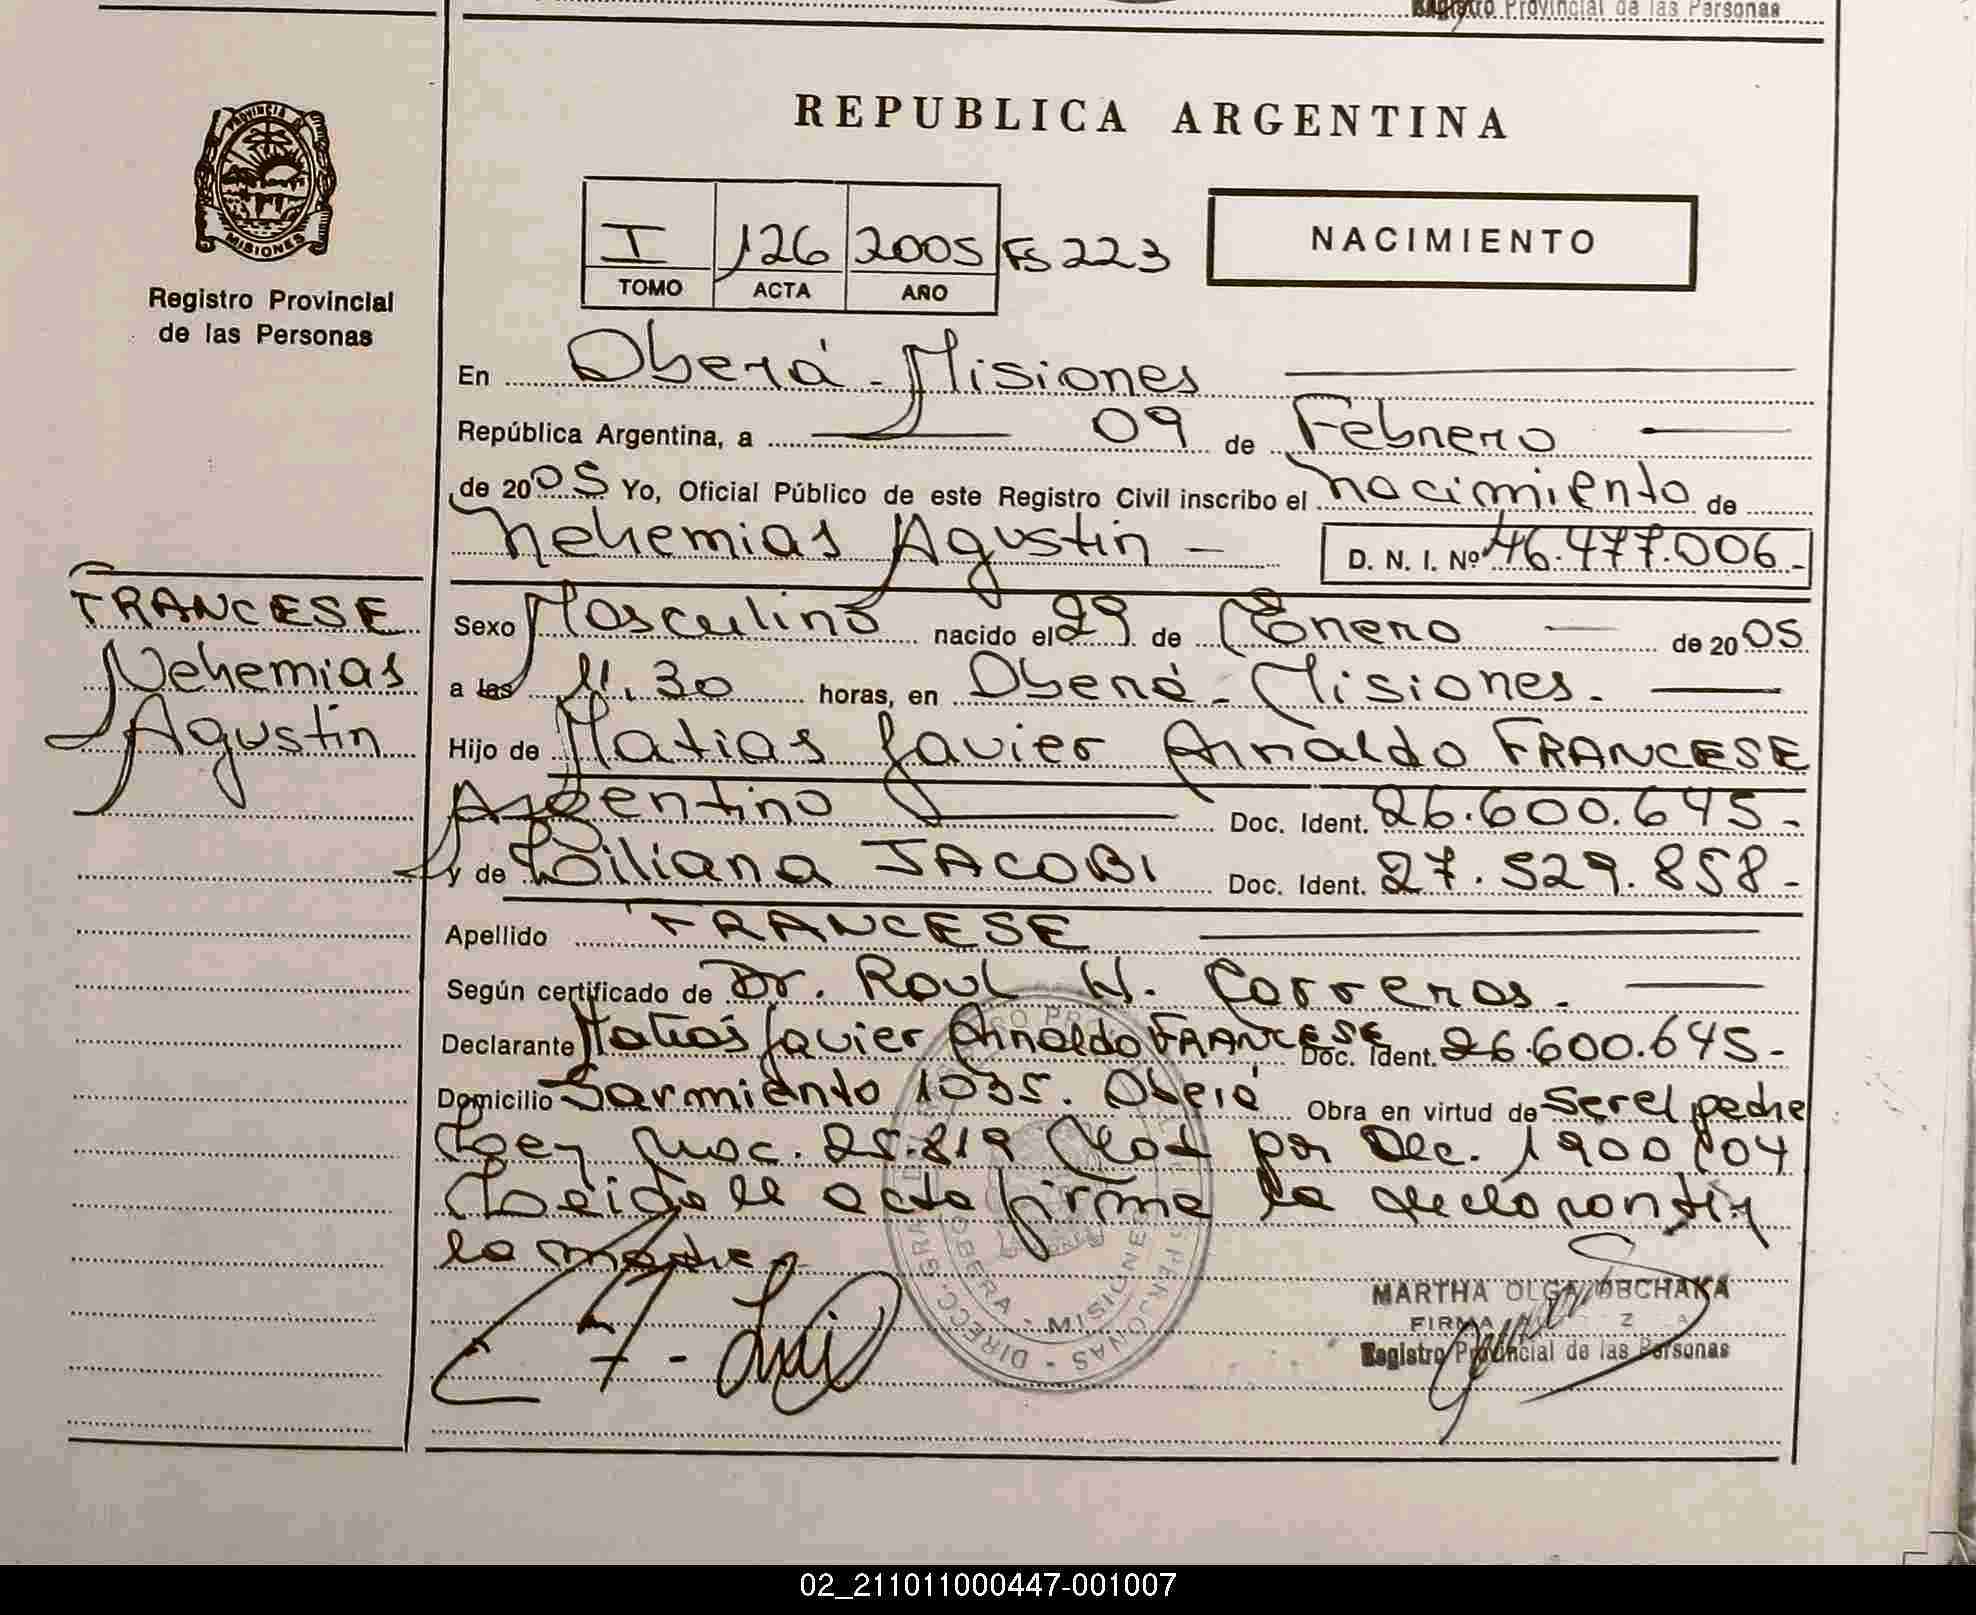 Registro Provincial de las Personas
PROVINCIA D
MISIONES
Registro Provincial
de las Personas
REPUBLICA ARGENTINA
I 126 2005 Fs 223
TOMO ACTA AÑO
NACIMIENTO
En Oberá - Misiones
República Argentina, a 09 de Febrero
de 2005 Yo, Oficial Público de este Registro Civil inscribo el nacimiento de
Nehemias Agustin - D. N. I. Nº 46.477.006.-
FRANCESE
Nehemias
Agustin
Sexo Masculino nacido el 29 de Enero de 2005
a las 11.30 horas, en Oberá - Misiones.
Hijo de Matias Javier Arnaldo FRANCESE
Argentino Doc. Ident. 26.600.645.-
y de Liliana JACOBI Doc. Ident. 27.529.858.-
Apellido FRANCESE
Según certificado de Dr. Raul H. Carreras.
Declarante Matias Javier Arnaldo FRANCESE Doc. Ident. 26.600.645.-
Domicilio Sarmiento 1035. Oberá Obra en virtud de Ser el padre
Ley Nac. 25.819 por Dec. 1900/04
Leida el acta firma la declarante y
la madre.-
OBERA - MISIONES
MARTHA OLGA
FIRMA
Registro Provincial de las Personas
02_211011000447-001007